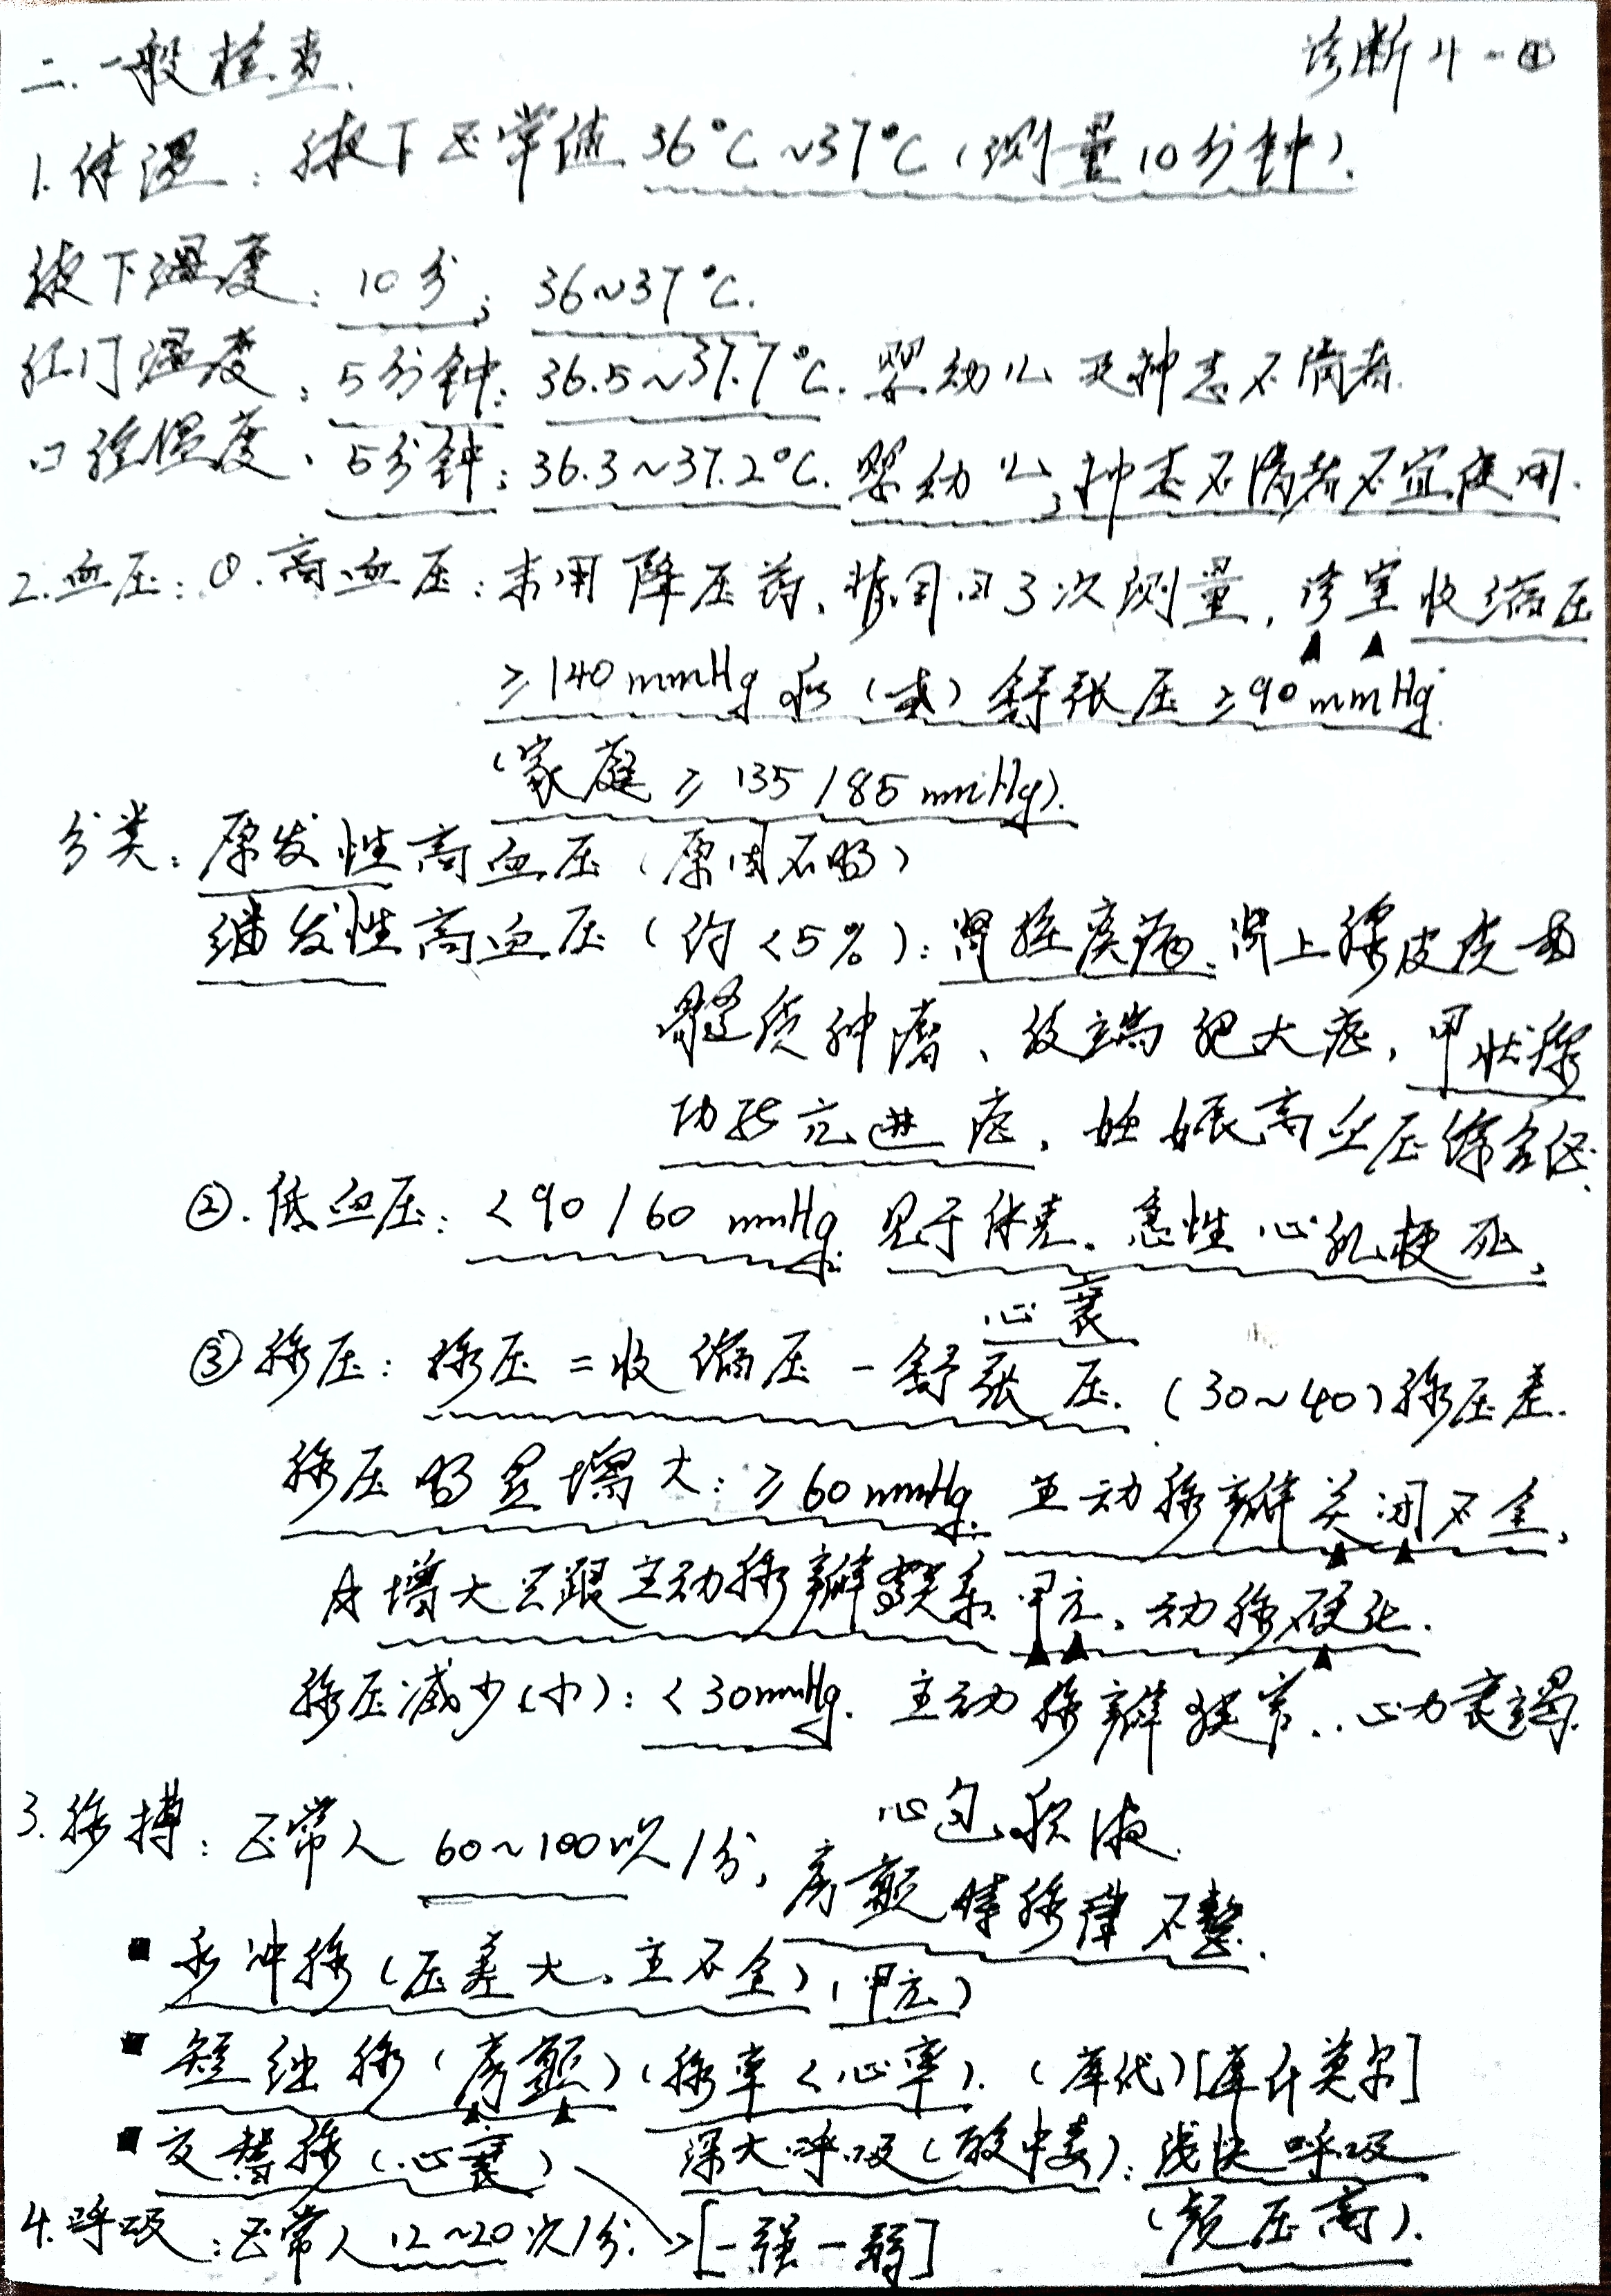 诊断 4-④
二.一般检查.
1.体温：腋下正常值 36°C~37°C（测量10分钟）.
腋下温度：10分；36~37°C.
肛门温度：5分钟：36.5~37.7°C. 婴幼儿及神志不清者.
口腔温度、5分钟：36.3~37.2°C. 婴幼儿,神志不清者不宜使用.
2.血压：①.高血压：未用降压药、非同日3次测量，诊室收缩压
≥140mmHg 和（或）舒张压≥90mmHg.
（家庭≥135/85mmHg）.
分类：原发性高血压（原因不明）
继发性高血压（约<5%）：肾脏疾病、肾上腺皮质和
髓质肿瘤、肢端肥大症，甲状腺
功能亢进症、妊娠高血压综合征.
②.低血压：<90/60 mmHg. 见于休克、急性心肌梗死、
心衰
③脉压：脉压=收缩压-舒张压.（30~40）脉压差.
脉压明显增大：≥60mmHg. 主动脉瓣关闭不全、
增大只跟主动脉瓣有关系 甲亢、动脉硬化.
脉压减少（小）：<30mmHg. 主动脉瓣狭窄、心力衰竭.
心包积液.
3.脉搏：正常人 60~100次/分，房颤时脉律不整.
▪ 水冲脉（压差大、主不全）（甲亢）
▪ 短绌脉（房颤）（脉率<心率）.（库代）[库什莫尔]
▪ 交替脉（心衰） 深大呼吸（酸中毒）：浅快呼吸
4.呼吸：正常人12~20次/分. →[一强一弱] （颅压高）.